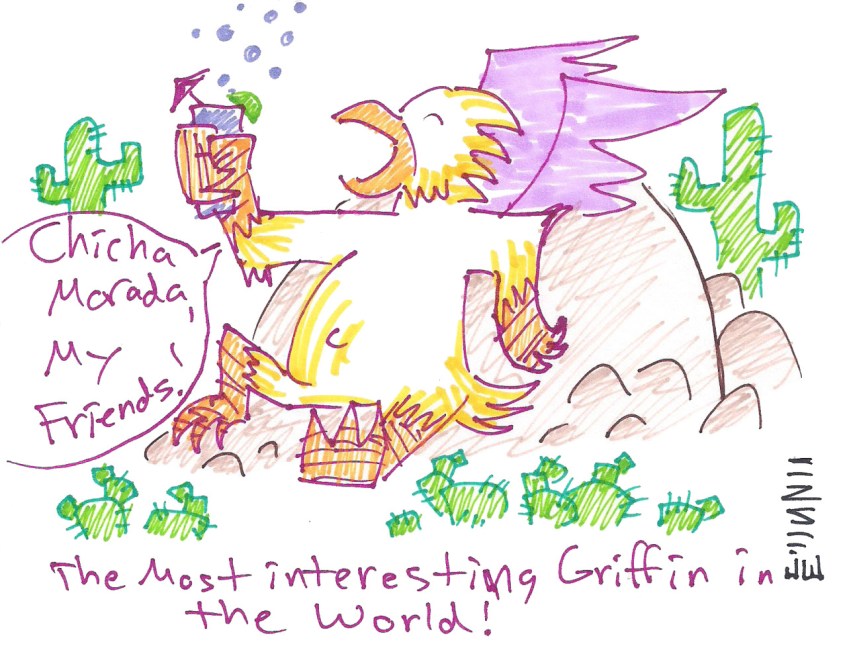 Chicha
Morada,
My
Friends!
The Most interesting Griffin in
the World!